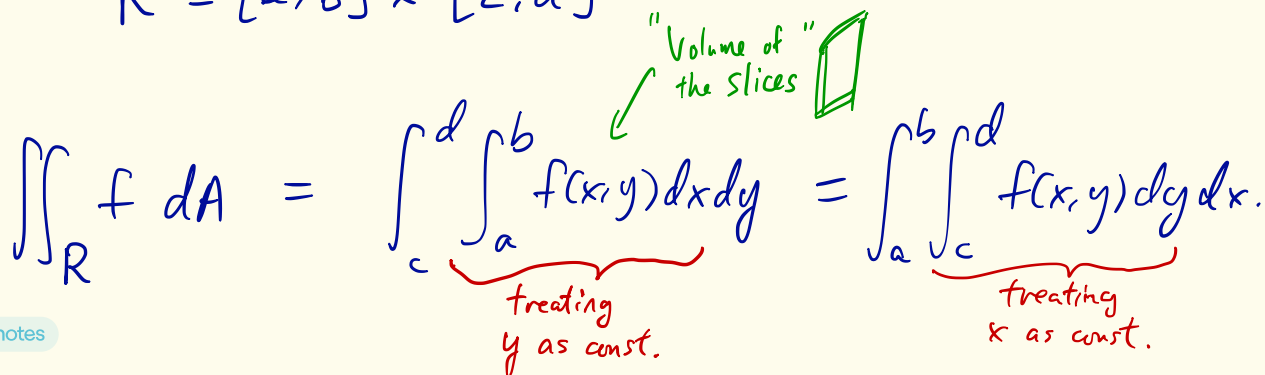 R = [a,b] × [c,d]
"Volume of"
the slices
∬_R f dA = ∫_c^d ∫_a^b f(x,y)dxdy = ∫_a^b ∫_c^d f(x,y)dydx.
treating
y as const.
treating
x as const.
notes